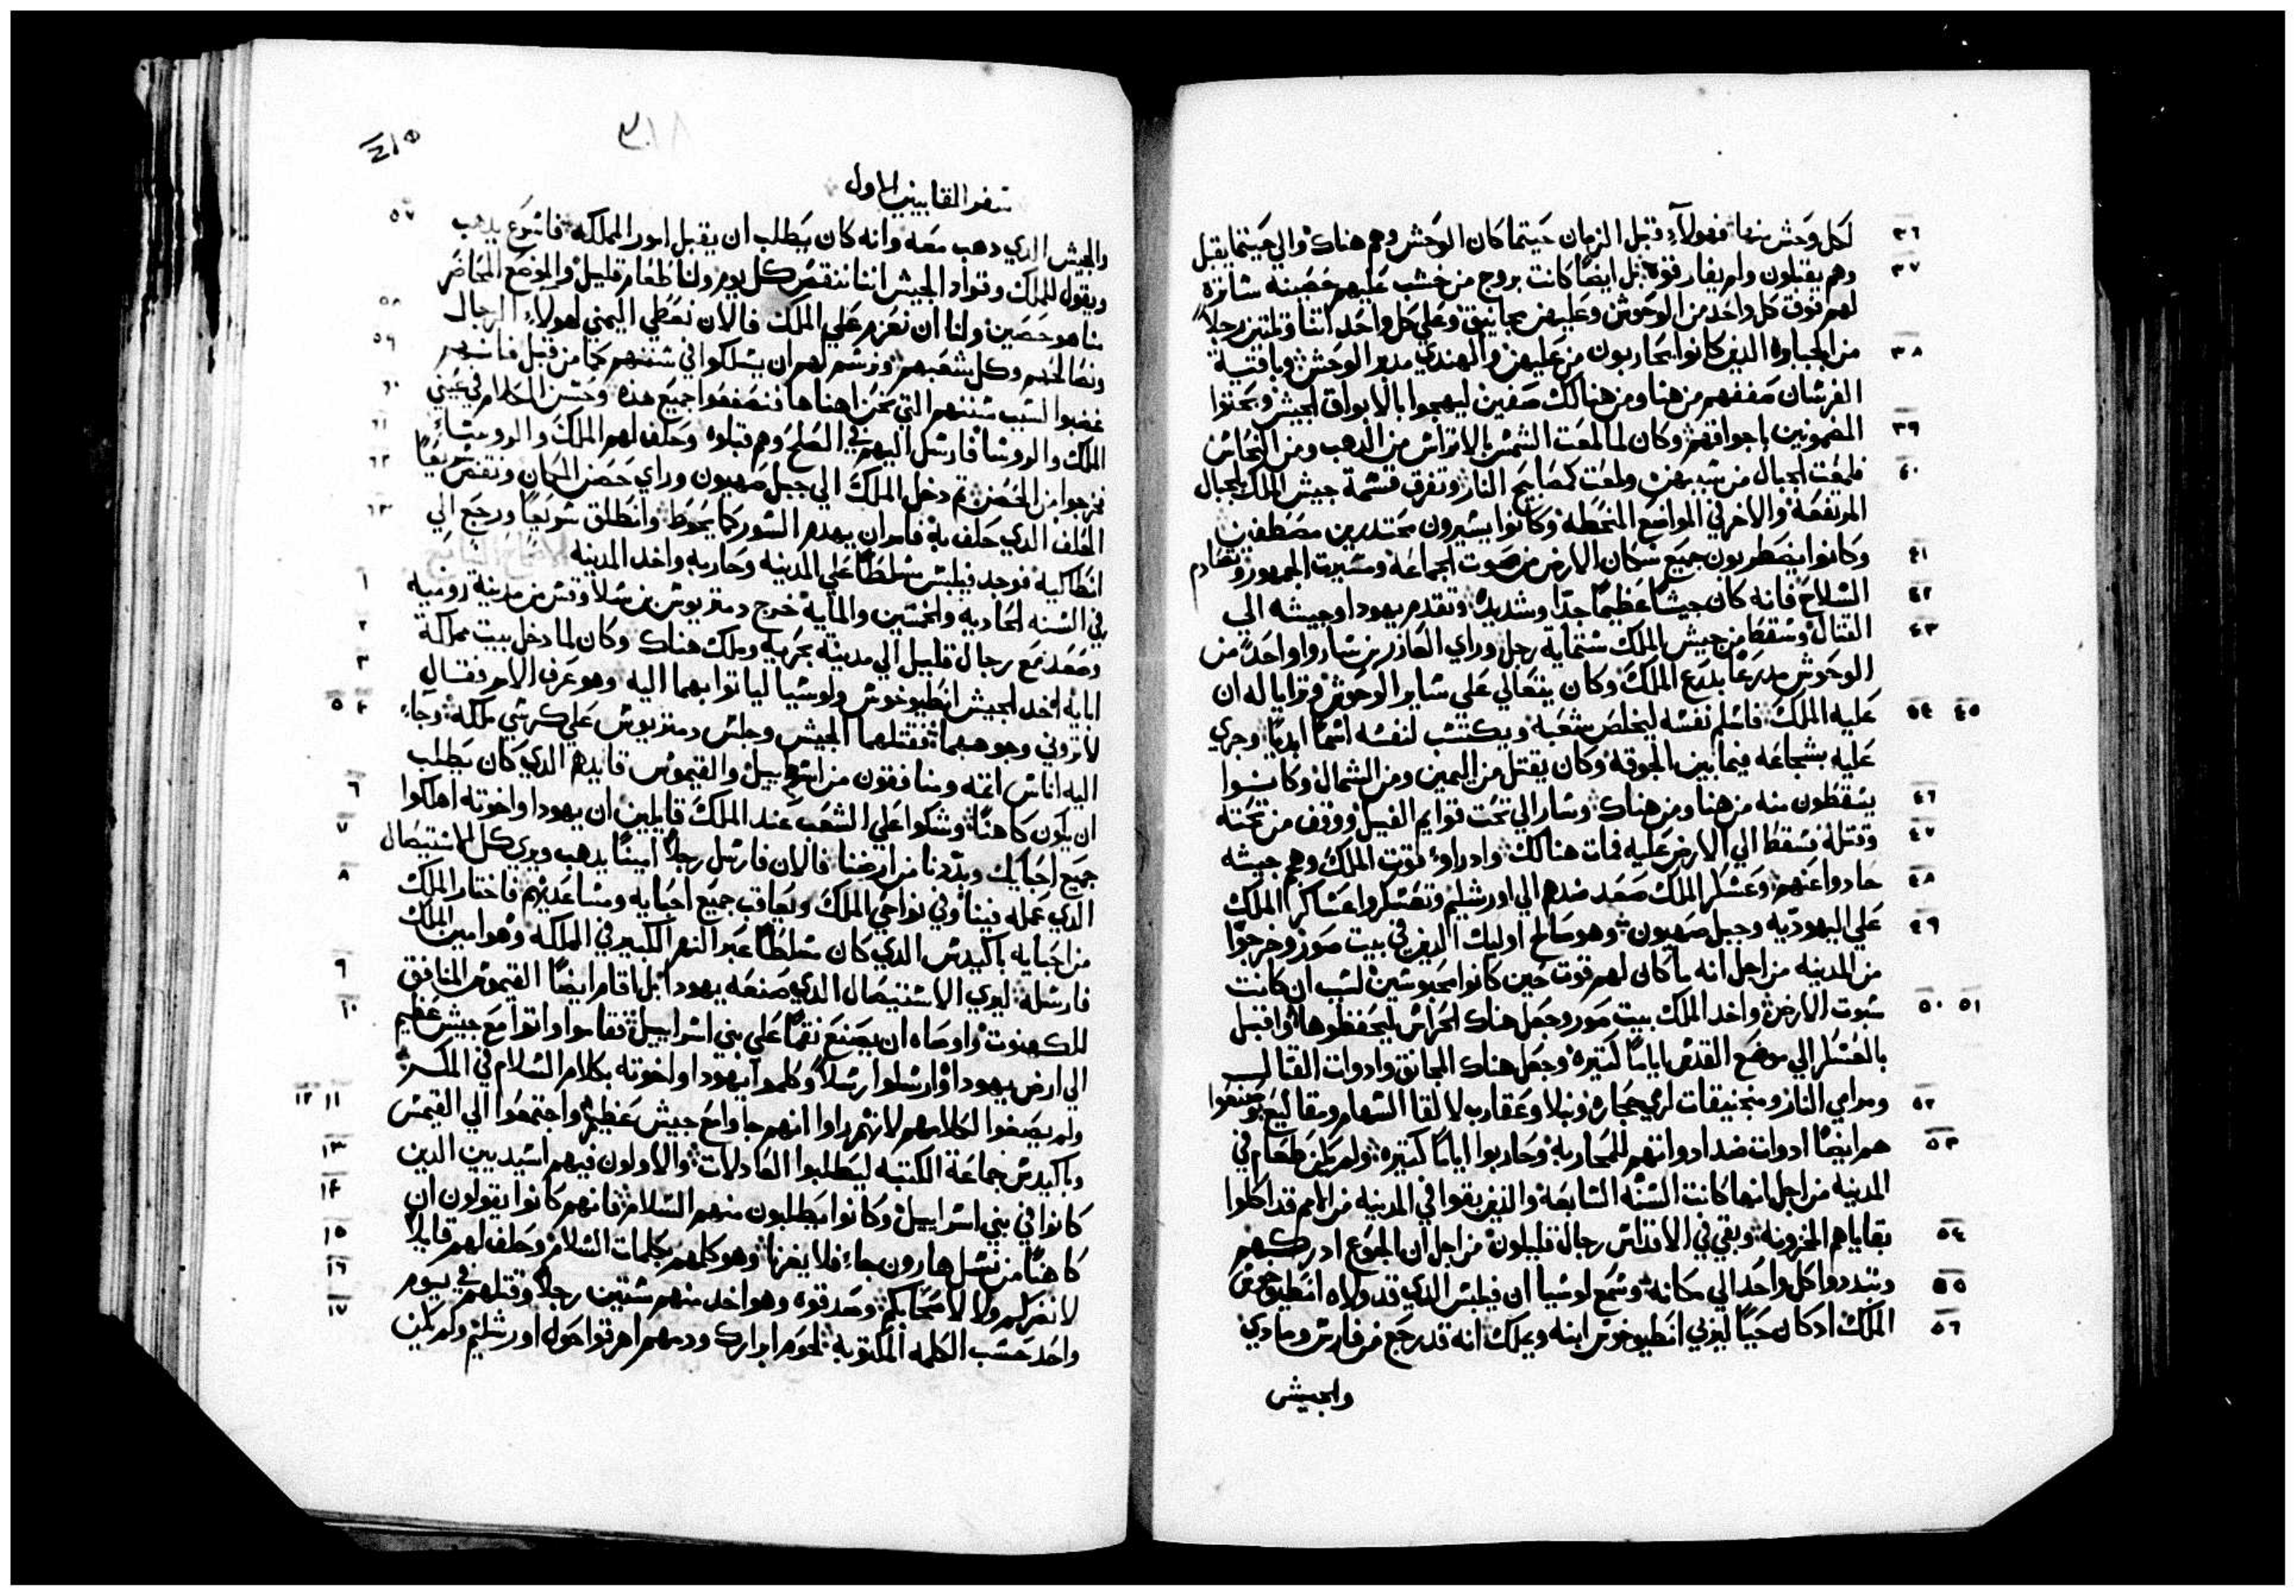 ٣٦ لكل وحش منها فهولاء قبل الزمان حيتما كان الوحش وهم هناك والي حيتما يقبل
٣٧ وهم يقبلون ولم يفارقوه بل ايضا كانت بروج من خشب عليهم حصينه ساتره
لهم فوق كل واحد من الوحوش وعليهن مجانيق وعلي كل واحد اتنا وتلتين رجلا
٣٨ من الجباره الدين كانوا يحاربون من عليهن والهندي مدبر الوحش وباقية
الفرسان صففهم من هنا ومن هنالك صفين ليهجوا بالابواق الجيش ويحتوا
٣٩ المضمونين باجواقهم وكان لما لمعت الشمس بالاتراس من الدهب ومن النحاس
٤٠ فلمعت الجبال من شبههن ولمعت كمصابيح النار وتفرق قسمة جيش الملك بالجبال
المرتفعه والاخر في المواضع المنحطه وكانوا يسيرون محتدرين مصطفين
٤١ وكانوا يضطربون جميع سكان الارض من صوت الجماعه ومسيرت الجمهور وتصادم
٤٢ السلاح فانه كان جيشا عظيما جدا وشديد وتقدم يهودا وجيشه الي
٤٣ القتال وسقط من جيش الملك ستماية رجل وراي العازر بن ساروا واحد من
الوحوش مدرعا بدرع الملك وكان يتعالي علي ساير الوحوش وترايا له ان
٤٤ ٤٥ عليه الملك فاسلم نفسه ليخلص شعبه ويكتسب لنفسه اسما ابديا وجري
عليه بشجاعه فيما بين الجوقه وكان يقتل من اليمين ومن الشمال وكانوا
٤٦ يسقطون منه من هنا ومن هناك وسار الي تحت قوايم الفيل ووقف من تحته
٤٧ وقتله فسقط الي الارض عليه فمات هنالك وادراوا قوت الملك وهجم جيشه
٤٨ حادوا عنهم وعسكر الملك صعد ضدهم الي اورشليم وتعسكروا عساكر الملك
٤٩ علي اليهوديه وجبل صهيون وهو صالح اوليك الدين في بيت صور وخرجوا
من المدينه من اجل انه ما كان لهم قوت حين كانوا محبوسين لسبب ان كانت
٥٠ ٥١ سبوت الارض واخد الملك بيت صور وجعل هناك الحراس ليحفظوها واقبل
بالعسكر الي موضع القدس اياما كتيره وجعل هناك المجانق وادوات القتال
٥٢ ومرامي النار ومنجنيقات لرمي حجاره ونبلا وعقارب لالقا السهام ومقاليع وصنعوا
٥٣ هم ايضا ادوات ضد ادواتهم للمحاربه وحاربوا اياما كتيره ولم يكن طعام في
المدينه من اجل انها كانت السنه السابعه والدين بقوا في المدينه من الامم قد اكلوا
٥٤ بقاياهم المخزونه وبقي في الاقداس رجال قليلون من اجل ان الجوع ادركهم
٥٥ وتبددوا كل واحد الي مكانه وسمع لوسيا ان فيلبس الدي قد ولاه انطيوخوس
٥٦ الملك اد كان حيا ليربي انطيوخوس ابنه ويملك انه قد رجع من فارس ومادي
والجيش
٣١٨
سفر المقابيين الاول
٥٧ والجيش الدي دهب معه وانه كان يطلب ان يقبل امور المملكه فاسرع يدهب
ويقول للملك وقواد الجيش اننا ننقص كل يوم ولنا طعام قليل والموضع المحاصر
٥٨ منا هو حصين ولنا ان نعزم علي الملك فالان نعطي اليمني لهولاء الرجال
٥٩ ونصالحهم وكل شعبهم ونرسم لهم ان يسلكوا في سننهم كما من قبل فانهم
٦٠ غضبوا لسبب سننهم التي نحن اهناها فصنعوا جميع هده وحسن الكلام في عيني
٦١ الملك والروسا فارسل اليهم في الصلح وهم قبلوه وحلف لهم الملك والروسا
٦٢ فخرجوا من الحصن تم دخل الملك الي جبل صهيون وراي حصن المكان ونقض سريعا
٦٣ الحلف الدي حلف به فامر ان يهدم السور كما يحوط وانطلق سريعا ورجع الي
انطاكيه فوجد فيلبس مسلطا علي المدينه وحاربه واخد المدينه
١ في السنه الحاديه والخمسين والمايه خرج دمتريوس بن سلاوقس من مدينة روميه
٢ وصعد مع رجال قليل الي مدينة بحريه وملك هناك وكان لما دخل بيت مملكة
٣ ابايه اخد الجيش انطيوخوس ولوسيا لياتوا بهما اليه وهو عرف الامر فقال
٤ ٥ لا تروني وجوههما فقتلهما الجيش وجلس دمتريوس علي كرسي ملكه وجاء
اليه اناس اتمه ومنافقون من اسراييل والقيموس قايدهم الدي كان يطلب
٦ ان يكون كاهنا وشكوا علي الشعب عند الملك قايلين ان يهودا واخوته اهلكوا
٧ جميع احبايك وبددنا من ارضنا فالان فارسل رجلا امينا يدهب ويري كل الاستيصال
٨ الدي عمله فينا وفي نواحي الملك ويعاقب جميع احبايه ومساعديهم فاختار الملك
من احبايه باكيدس الدي كان مسلطا عبر النهر الكبير في المملكه وهو امين الملك
٩ فارسله ليري الاستيصال الدي صنعه يهودا بل اقام ايضا القيموس المنافق
١٠ للكهنوت واوصاه ان يصنع نقما علي بني اسراييل فقاموا واتوا مع جيش عظيم
الي ارض يهودا وارسلوا رسلا وكلموا يهودا واخوته بكلام السلام في المكر
١١ ١٢ ولم يصغوا لكلامهم لانهم راوا انهم جاوا مع جيش عظيم واجتمعوا الي القيمس
١٣ وباكيدس جماعة الكتبه ليطلبوا العادلات والاولون فيهم اسيديين الدين
١٤ كانوا في بني اسراييل وكانوا يطلبون منهم السلام فانهم كانوا يقولون ان
١٥ كاهنا من نسل هارون جاء فلا يغرنا وهو كلمهم بكلمات السلام وحلف لهم قايلا
١٦ لا نضركم ولا لاصحابكم وصدقوه وهو اخد منهم ستين رجلا وقتلهم في يوم
١٧ واحد حسب الكلمه المكتوبه لحوم ابرارك ودمهم اهرقوا حول اورشليم ولم يكن